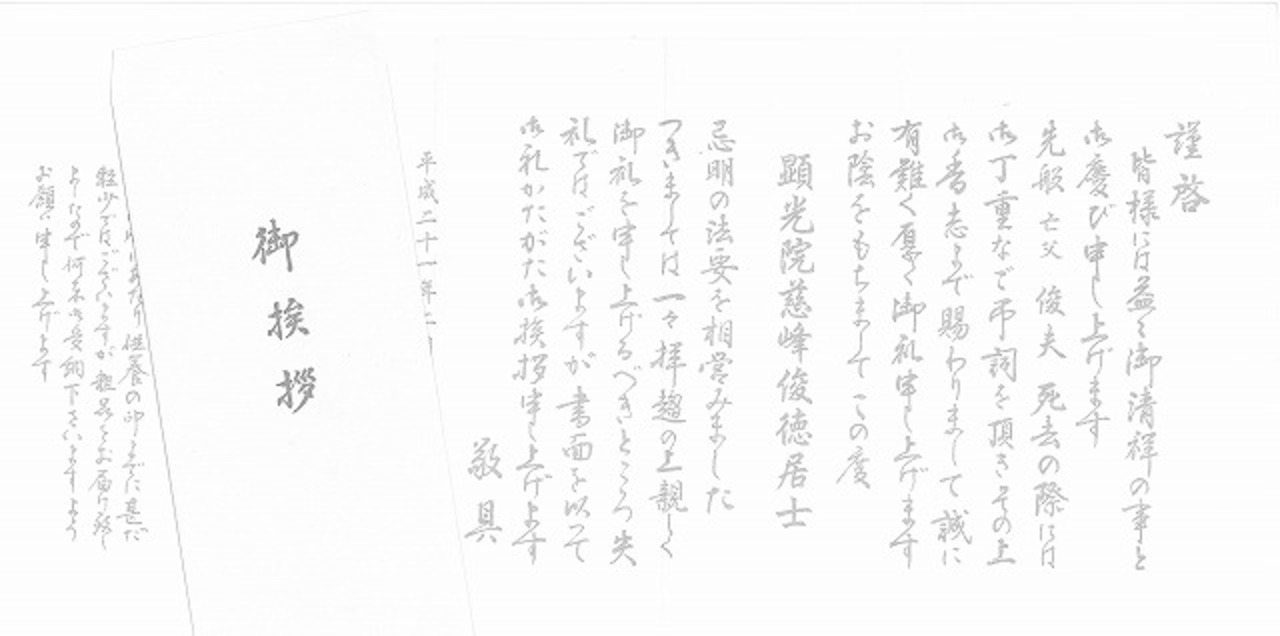 謹啓
皆様には益々御清祥の事と
御慶び申し上げます
先般 亡父 俊夫 死去の際には
御丁重なご弔詞を頂きその上
御香志まで賜わりまして誠に
有難く厚く御礼申し上げます
お陰をもちまして この度
顕光院慈峰俊徳居士
忌明の法要を相営みました
つきましては 一々拝趨の上親しく
御礼を申し上げるべきところ 失
礼ではございますが 書面を以って
御礼かたがた御挨拶申し上げます
敬具
平成二十一年二
御挨拶
あたり 供養の印までに 甚だ
軽少ではございますが 粗品をお届け致し
ましたので 何卒御受納下さいますよう
お願い申し上げます